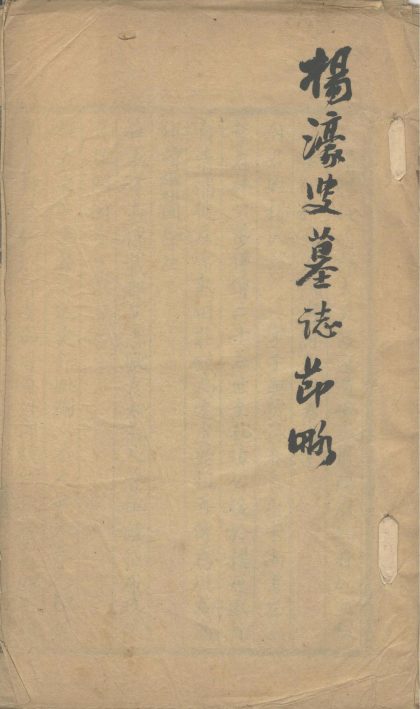 楊濠叟墓誌節略